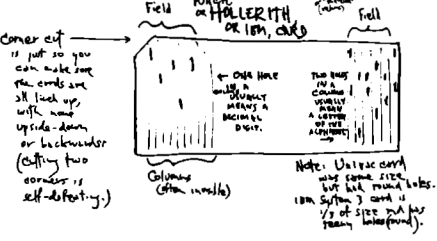 Field
OR HOLLERITH
OR IBM, CARD
Field
corner cut
is just so you
can make sure
the cards are
all lined up,
with none
upside-down
or backwards
(cutting two
corners is
self-defeating.)
← ONE HOLE
USUALLY
MEANS A
DECIMAL
DIGIT.
TWO HOLES
IN A
COLUMN
USUALLY
MEAN
A LETTER
OF THE
ALPHABET
Columns
(often invisible)
Note: Univac card
was same size
but had round holes.
IBM System 3 card is
1/3 of size and has
teeny holes (round).